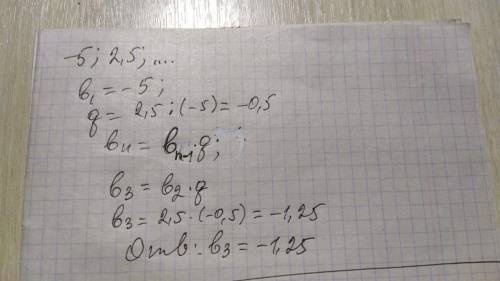 -5; 2,5; ....
b₁ = -5;
q = 2,5 : (-5) = -0,5
bₙ = bₙ₋₁ · q;
b₃ = b₂ · q
b₃ = 2,5 · (-0,5) = -1,25
Отв: b₃ = -1,25